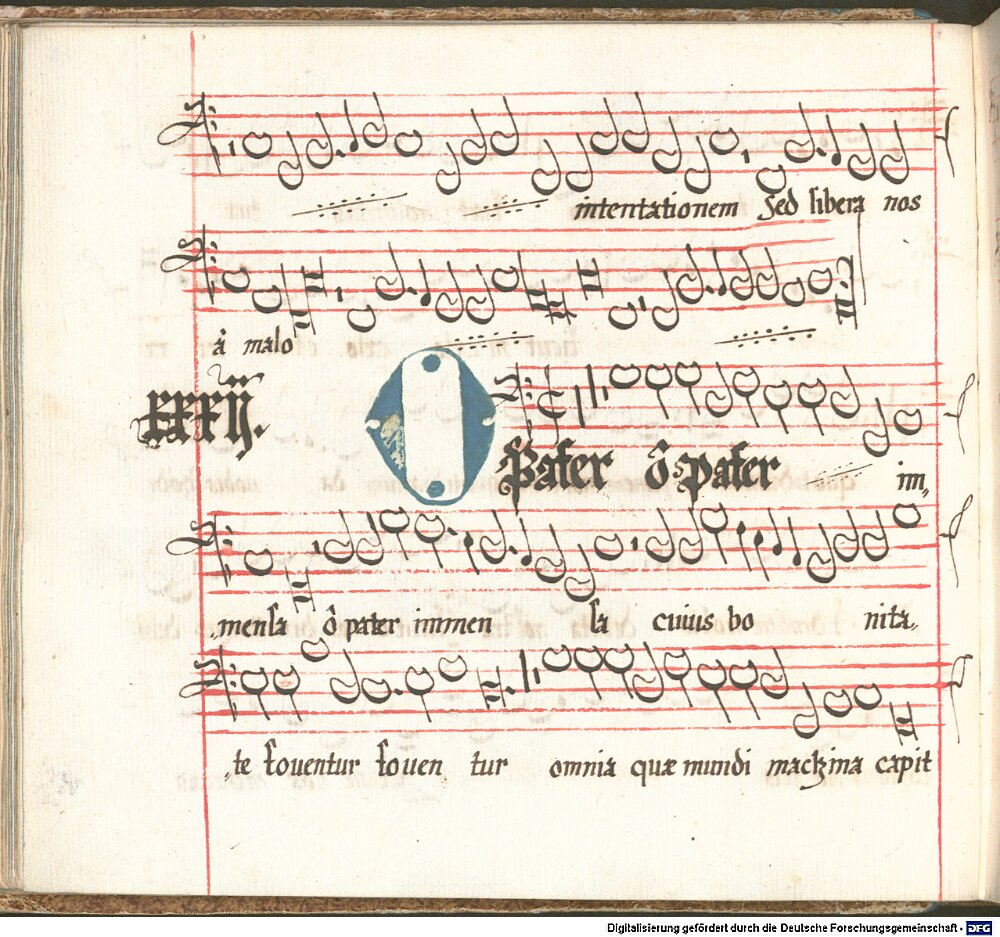 intentationem Sed libera nos
à malo
XXXXII.
O Pater ô pater im„
„mensa ô pater immen sa cuius bo nita„
„te fouentur fouen tur omnia quæ mundi machina capit
Digitalisierung gefördert durch die Deutsche Forschungsgemeinschaft - DFG